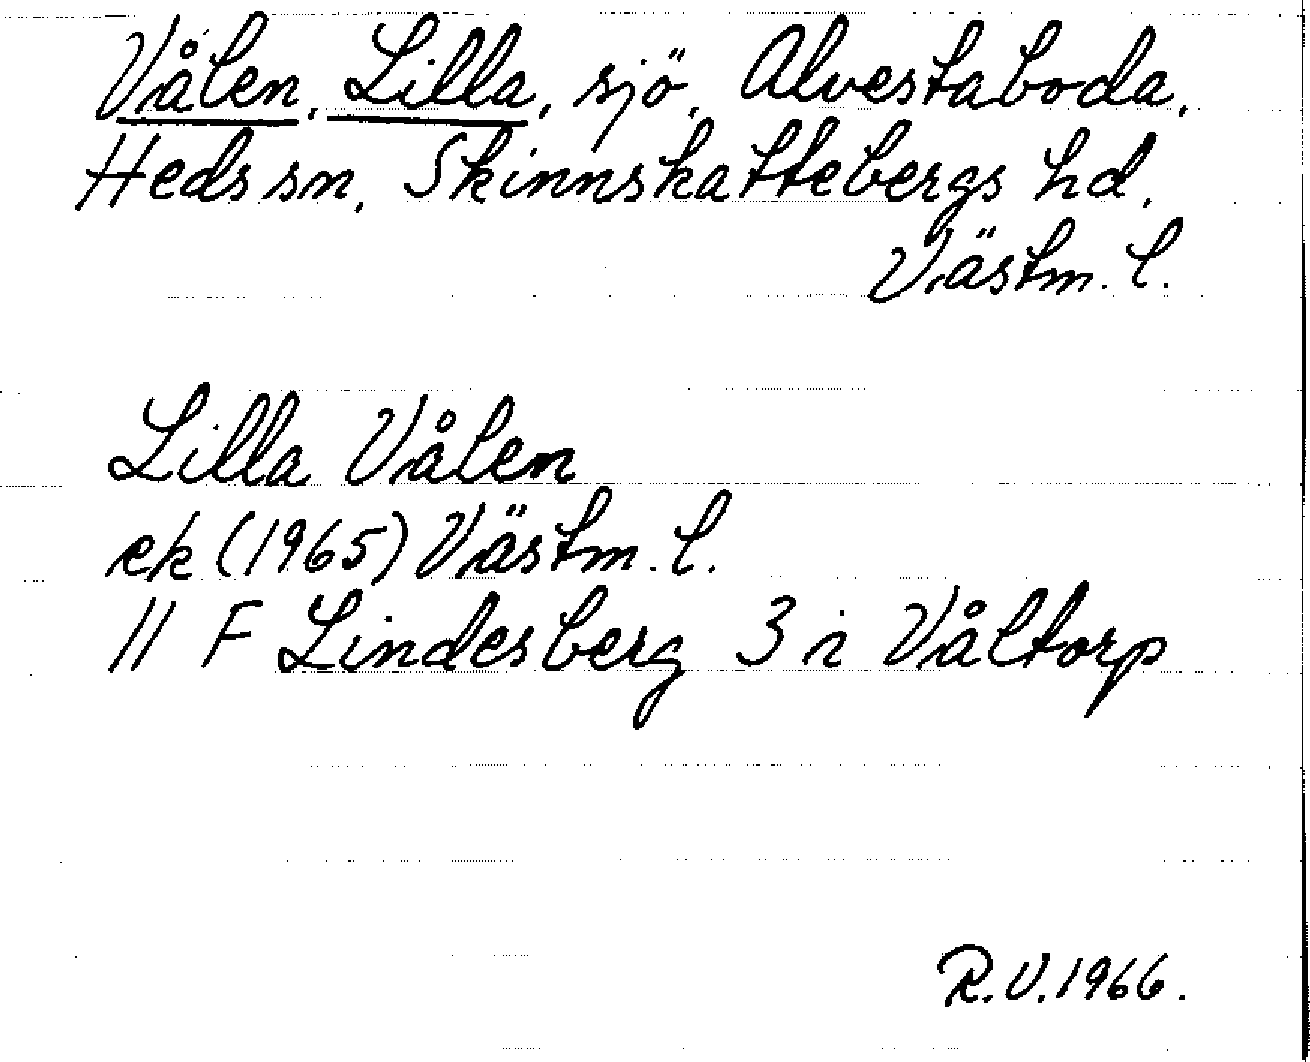 Vålen, Lilla, sjö, Alvestaboda,
Heds sn, Skinnskattebergs hd,
Västm. l.
Lilla Vålen
ek (1965) Västm. l.
11 F Lindesberg 3 i Våltorp
R.V. 1966.